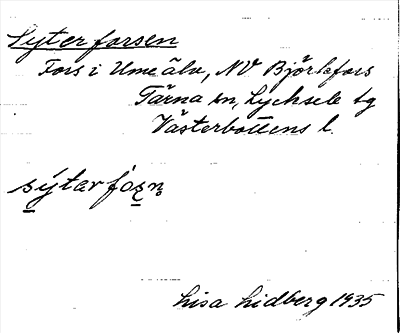 Syterforsen
Fors i Umeälv, NV Björkfors
Tärna sn, Lycksele tg
Västerbottens l.
sýtarfo̱ṣṇ
Lisa Lidberg 1935